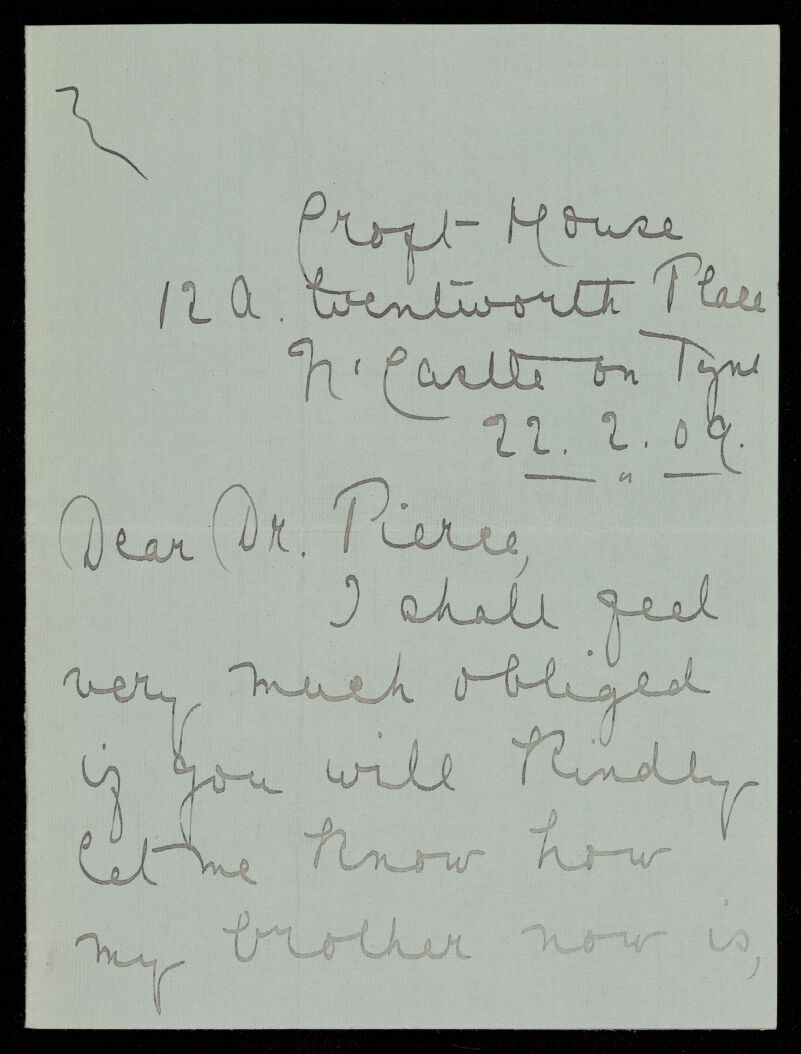 Croft House
12 A. Wentworth Place
N'Castle on Tyne
22. 2. 09.
Dear Dr. Pierce,
I shall feel
very much obliged
if you will kindly
let me know how
my brother now is,